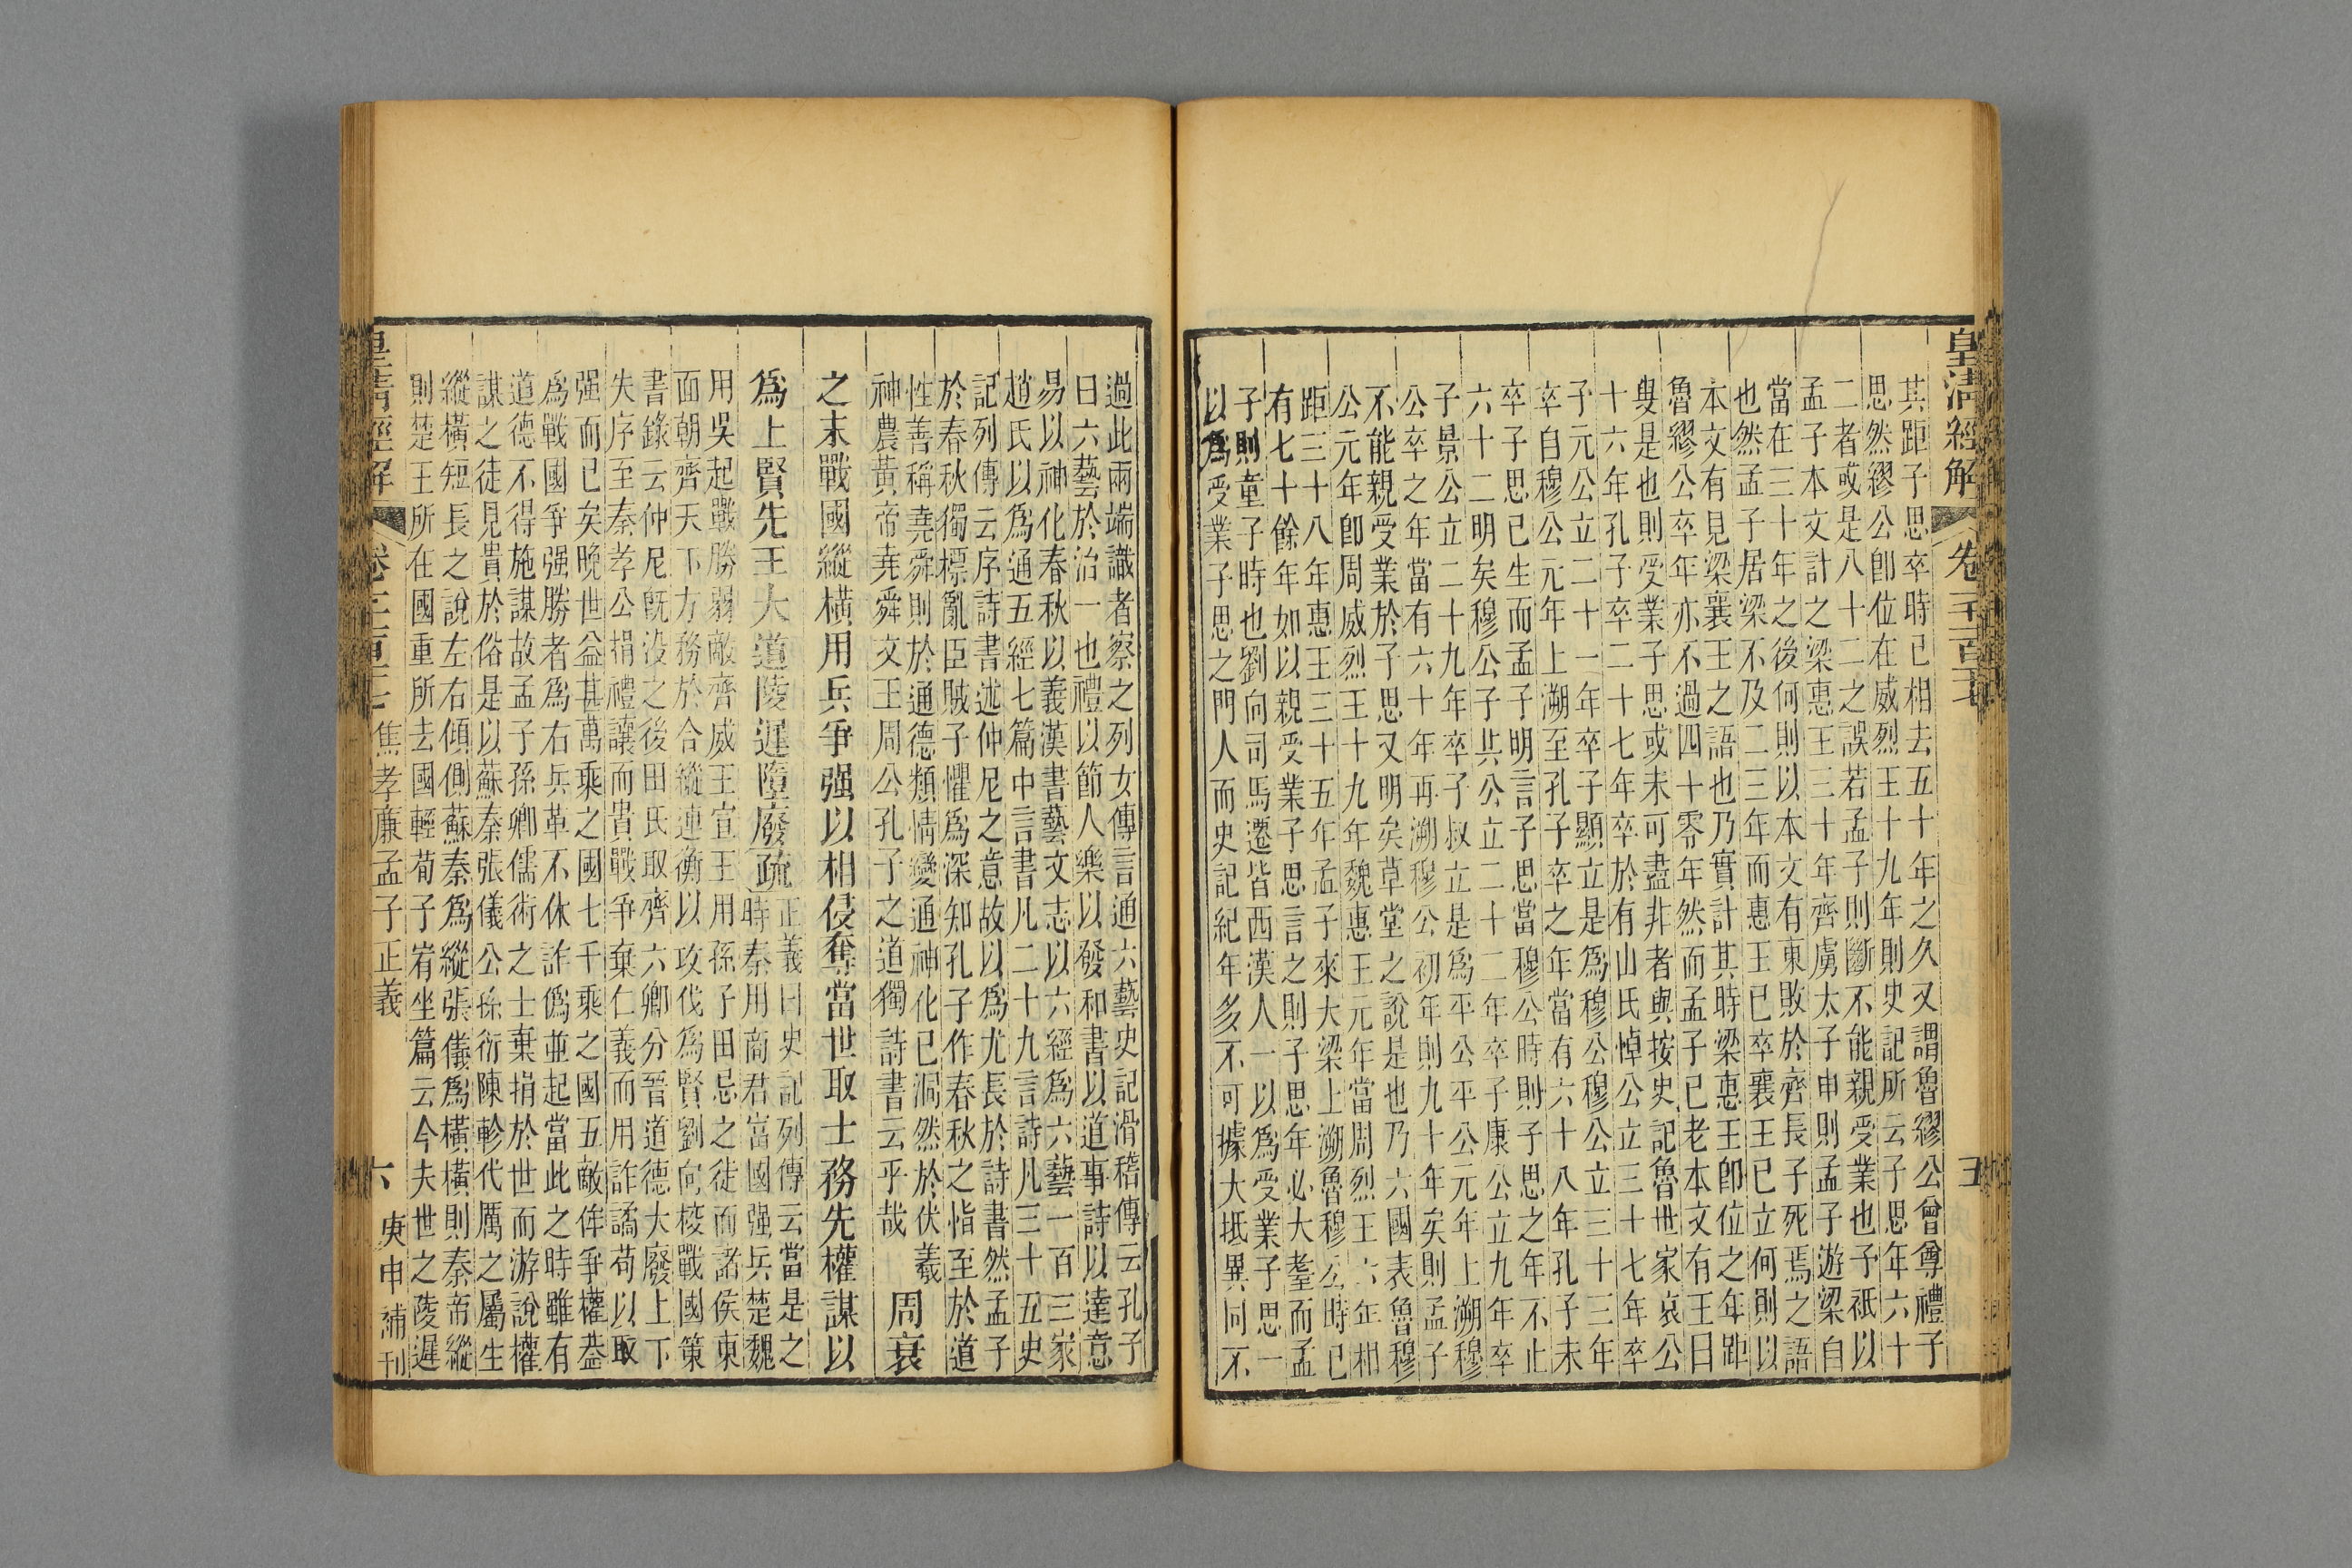 皇清經解 卷一千一百十七 五
其距子思卒時已相去五十年之久又謂魯繆公曾尊禮子
思然繆公卽位在威烈王十九年則史記所云子思年六十
二者或是八十二之誤若孟子則斷不能親受業也子祇以
孟子本文計之梁惠王三十年齊虜太子申則孟子游梁自
當在三十年之後何則以本文有東敗於齊長子死焉之語
也然孟子居梁不及二三年而惠王已卒襄王已立何則以
本文有見梁襄王之語也乃實計其時梁惠王卽位之年距
魯繆公卒年亦不過四十零年然而孟子已老本文有王曰
叟是也則受業子思或未可盡非者與按史記魯世家哀公
十六年孔子卒二十七年卒於有山氏悼公立三十七年卒
子元公立二十一年卒子顯立是爲穆公穆公立三十三年
卒自穆公元年上溯至孔子卒之年當有六十八年孔子未
卒子思已生而孟子明言子思當穆公時則子思之年不止
六十二明矣穆公子共公立二十二年卒子康公立九年卒
子景公立二十九年卒子叔立是爲平公平公元年上溯穆
公卒之年當有六十年再溯穆公初年則九十年矣則孟子
不能親受業於子思又明矣草堂之說是也乃六國表魯穆
公元年卽周威烈王十九年魏惠王元年當周烈王六年相
距三十八年惠王三十五年孟子來大梁上溯魯穆公時已
有七十餘年如以親受業子思言之則子思年必大耋而孟
子則童子時也劉向司馬遷皆西漢人一以爲受業子思一
以爲受業子思之門人而史記紀年多不可據大抵異同不
過此兩端識者察之列女傳言通六藝史記滑稽傳云孔子
曰六藝於治一也禮以節人樂以發和書以道事詩以達意
易以神化春秋以義漢書藝文志以六經爲六藝一百三家
趙氏以爲通五經七篇中言書凡二十九言詩凡三十五史
記列傳云序詩書述仲尼之意故以爲尤長於詩書然孟子
於春秋獨標亂臣賊子懼爲深知孔子作春秋之恉至於道
性善稱堯舜則於通德類情變通神化已洞然於伏羲
神農黃帝堯舜文王周公孔子之道獨詩書云乎哉
周衰
之末戰國縱橫用兵爭强以相侵奪當世取士務先權謀以
爲上賢先王大道陵遲墮廢疏
正義曰史記列傳云當是之
時秦用商君富國强兵楚魏
用吳起戰勝弱敵齊威王宣王用孫子田忌之徒而諸侯東
面朝齊天下方務於合縱連衡以攻伐爲賢劉向校戰國策
書錄云仲尼旣沒之後田氏取齊六卿分晉道德大廢上下
失序至秦孝公捐禮讓而貴戰爭棄仁義而用詐譎苟以取
强而已矣晚世益甚萬乘之國七千乘之國五敵侔爭權蓋
爲戰國爭强勝者爲右兵革不休詐僞並起當此之時雖有
道德不得施謀故孟子孫卿儒術之士棄捐於世而游說權
謀之徒見貴於俗是以蘇秦張儀公孫衍陳軫代厲之屬生
縱橫短長之說左右傾側蘇秦爲縱張儀爲橫橫則秦帝縱
則楚王所在國重所去國輕荀子宥坐篇云今夫世之陵遲
皇清經解 卷一千一百十七 焦孝廉孟子正義 六 庚申補刊